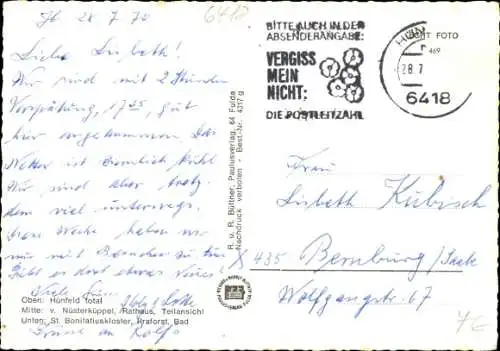 28.7.70
6418
Liebe Lisbeth!
Wir sind mit 2 Stunden
Verspätung, 17 35, gut
hier angekommen. Das
Wetter ist ziemlich kühl
Wir sind aber trotz
dem viel unterwegs.
Woche haben wir
nur mit Besuchen zu tun
Gibt es dort etwas Neues?
Viele
Grüsse an Rolf
Oben: Hünfeld total
Mitte: v. Nüsterküppel, Rathaus, Teilansicht
Unten: St. Bonifatiuskloster, Praforst, Bad
R. u. R. Büttner, Paulusverlag, 64 Fulda
Nachdruck verboten - Best.-Nr. 4317 g
BITTE AUCH IN DER
ABSENDERANGABE:
VERGISS
MEIN
NICHT:
DIE POSTLEITZAHL
FOTO
469
28.7
6418
Frau
Lisbeth Kubisch
X 435 Bernburg/Saale
Wolfgangstr. 67